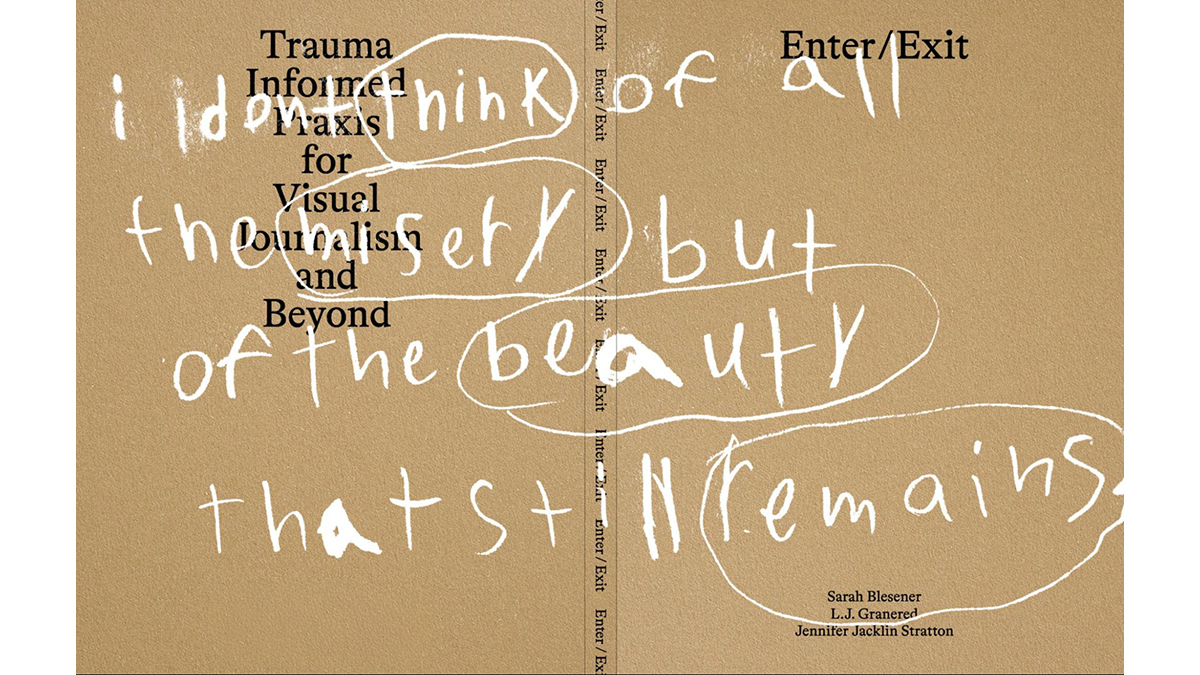 Trauma
Informed
Praxis
for
Visual
Journalism
and
Beyond
Enter/Exit
i dont think of all
the misery but
of the beauty
that still remains.
er/Exit
Enter/Exit
Enter/Exit
Enter/Exit
Enter/Exit
Enter/Exit
Enter/Exit
Enter/Exi
Sarah Blesener
L.J. Granered
Jennifer Jacklin Stratton